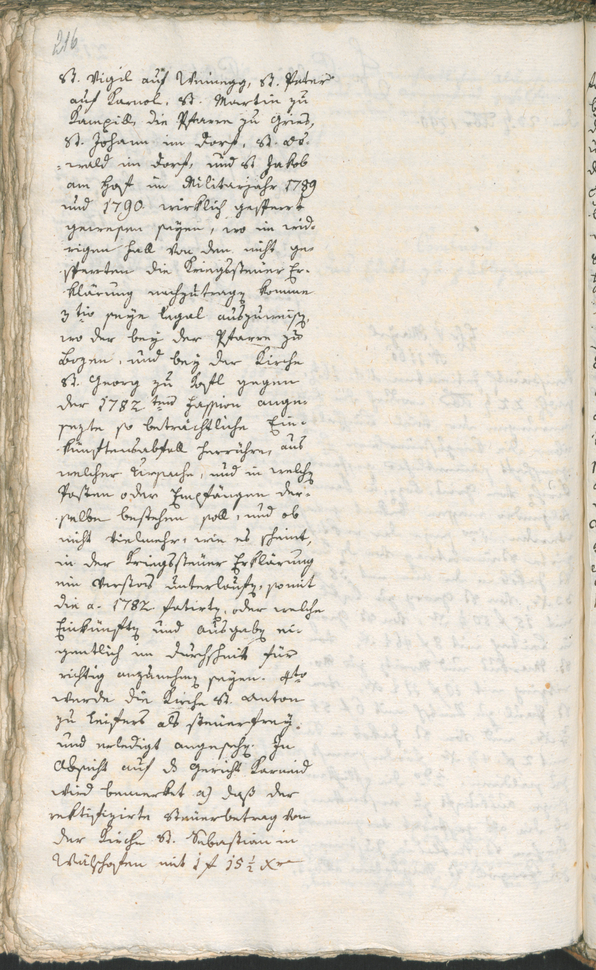 216
St. Vigil auf Weinegg, St. Peter
auf Karnol, St. Martin zu
Kampill, die Pfarre zu Gries,
St. Johann im Dorf, St. Os-
wald im Dorf, und St Jakob
am Hof im Militarjahr 1789
und 1790 wirklich gesperrt
gewesen seyen, wo im wid-
rigen Fall von den nicht ge-
sperrten die Kriegssteuer Er-
klärung nachzutragen komme
3tio seye legal auszuweisen,
wo der bey der Pfarre zu
Bozen, und bey der Kirche
St. Georg zu Kofl gegen
der 1782ten Fassion ange-
sezte so beträchtliche Ein-
künftenabfall herrühre, aus
welcher Ursache, und in welchen
Posten oder Empfängen der-
selbe bestehen soll, und ob
nicht vielmehr, wie es scheint,
in der Kriegssteuer Erklärung
ein Verstos unterlaufen, somit
die a. 1782 fatirten, oder welche
Einkünften und Ausgaben ei-
gentlich im Durchschnit für
richtig anzunehmen seyen. 4to
werde die Kirche St. Anton
zu Leifers als steuerfrey,
und erledigt angesehen. In
Absicht auf das Gericht Karneid
wird bemerket a) daß der
rektifizirte Steuerbetrag von
der Kirche St. Sebastian in
Wälschofen mit 1 f 15 1/2 xr